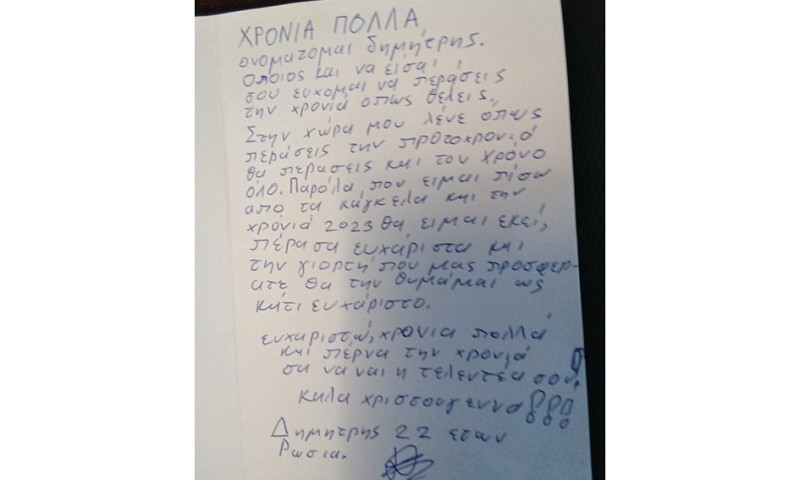 ΧΡΟΝΙΑ ΠΟΛΛΑ
ονοματομαι δημήτρης.
οποιος και να είσαι
σου ευχομαι να περάσεις
την χρονιά οπως θέλεις.
Στην χώρα μου λένε όπως
περάσεις την προτοχρονιά
θα περασεις και τον χρόνο
όλο. Παρόλα που ειμαι πίσω
απο τα κάγκελα και την
χρόνιά 2023 θα ειμαι εκεί,
πέρασα ευχάριστα και
την γιορτή που μας προσφερ-
ατε θα την θυμάμαι ως
κάτι ευχάριστο.
ευχαριστώ, χρονια πολλά
και πέρνα την χρονιά
σα να ναι η τελευτέα σου!
καλα χριστουγεννα!!!
Δημητρης 22 ετων
Ρωσια.